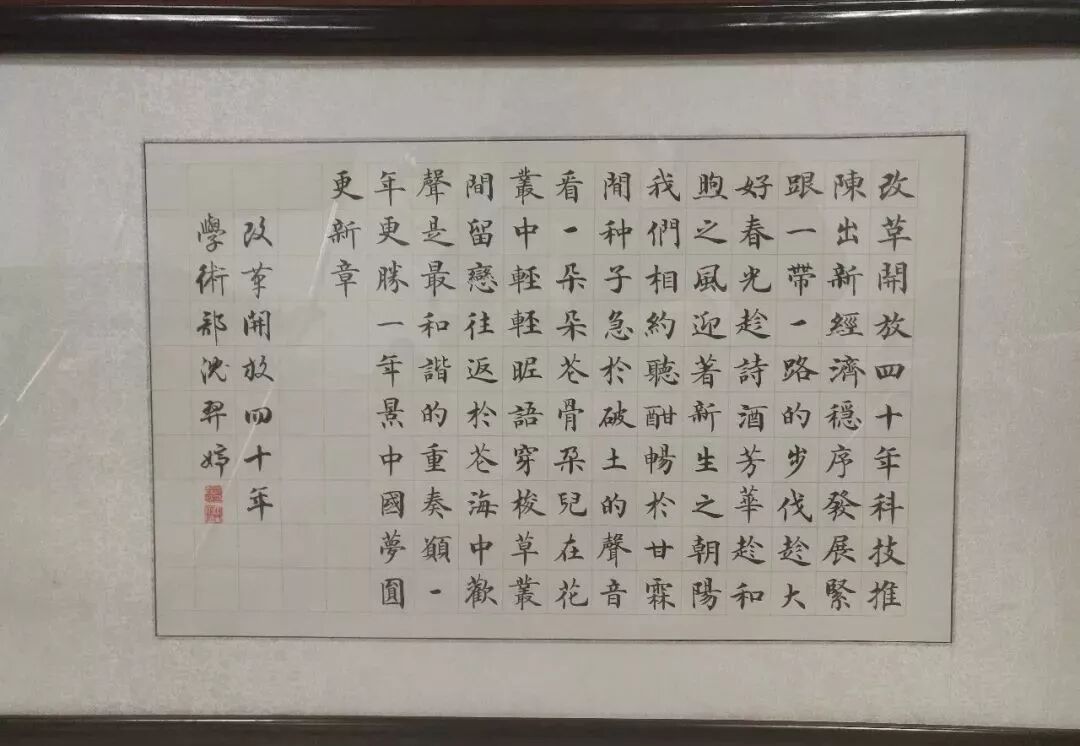 改革開放四十年科技推
陳出新經濟穩序發展緊
跟一帶一路的步伐趁大
好春光趁詩酒芳華趁和
煦之風迎著新生之朝陽
我們相約聽酣暢於甘霖
間种子急於破土的聲音
看一朵朵芲骨朶兒在花
叢中輕輕昵語穿梭草叢
間留戀往返於芲海中歡
聲是最和諧的重奏願一
年更勝一年景中國夢圓
更新章
改革開放四十年
學術部沈羿婷